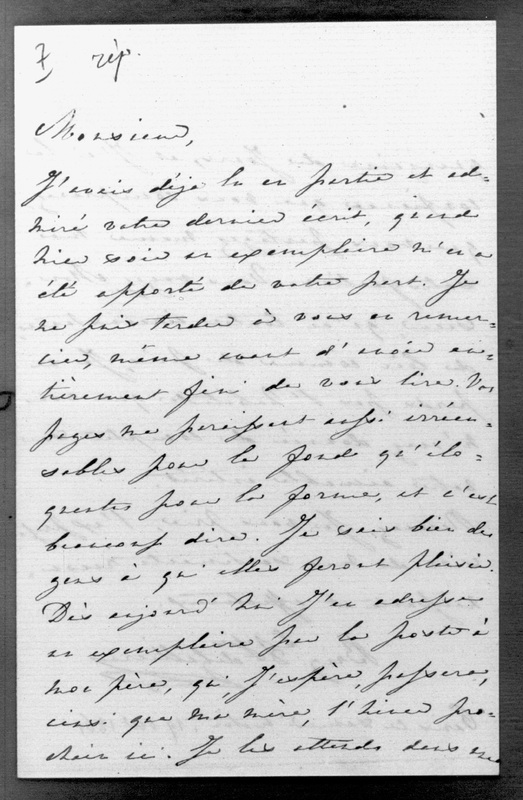 rép.
Monsieur,
J'avais déjà lu en partie et ad=
miré votre dernier écrit, quand
hier soir un exemplaire m'en a
été apporté de votre part. Je
ne puis tarder à vous en remer=
cier, même avant d'avoir en=
tièrement fini de vous lire. Vos
pages me paraissent aussi irrécu=
sables pour le fond qu'élo=
quentes pour la forme, et c'est
beaucoup dire. Je sais bien des
gens à qui elles feront plaisir.
Dès aujourd'hui j'en adresse
un exemplaire par la poste à
mon père, qui, j'espère, passera,
ainsi que ma mère, l'hiver pro=
chain ici. Je les attends dans